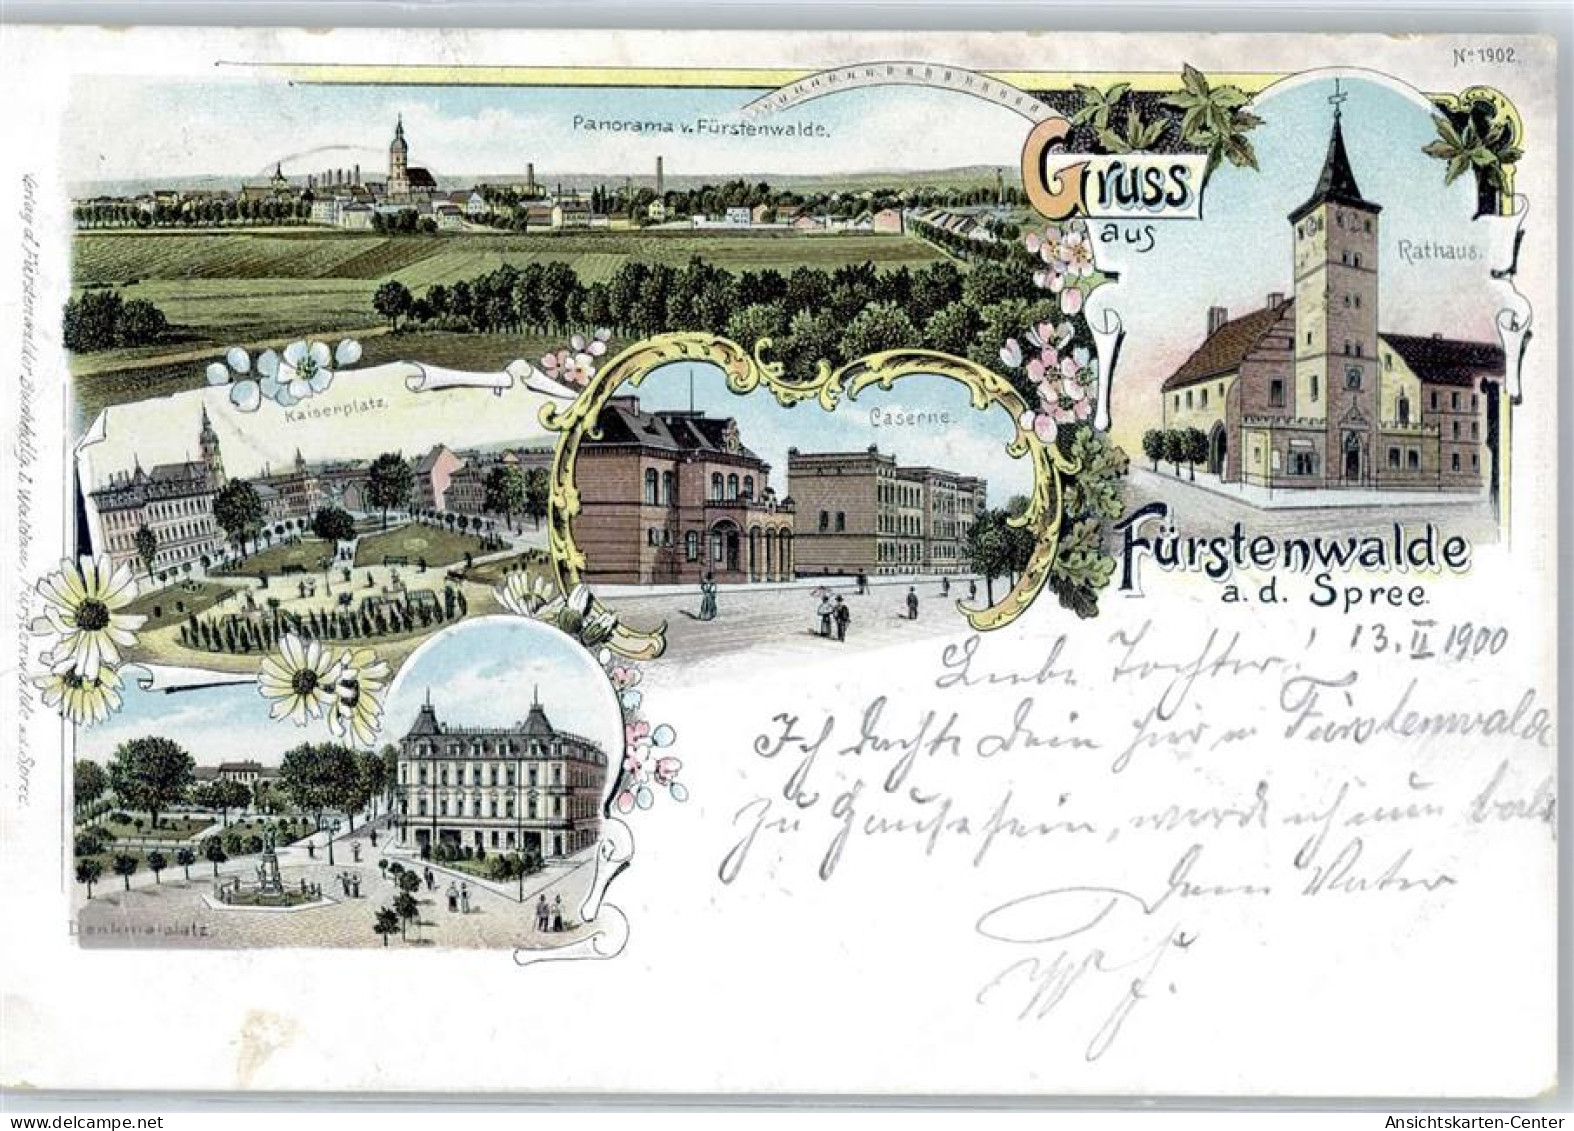 No 1902.
Panorama v. Fürstenwalde.
Gruss
aus
Rathaus.
Kaiserplatz.
Caserne.
Fürstenwalde
a. d. Spree.
Denkmalplatz.
Verlag d. Fürstenwalder Buchhdlg. Fürstenwalde a. d. Spree.
13. II 1900
Liebe Tochter!
Ich dachte Dein hier in Fürstenwalde
zu Hause sein, werde ich nun bald
Dein Vater
Ansichtskarten-Center